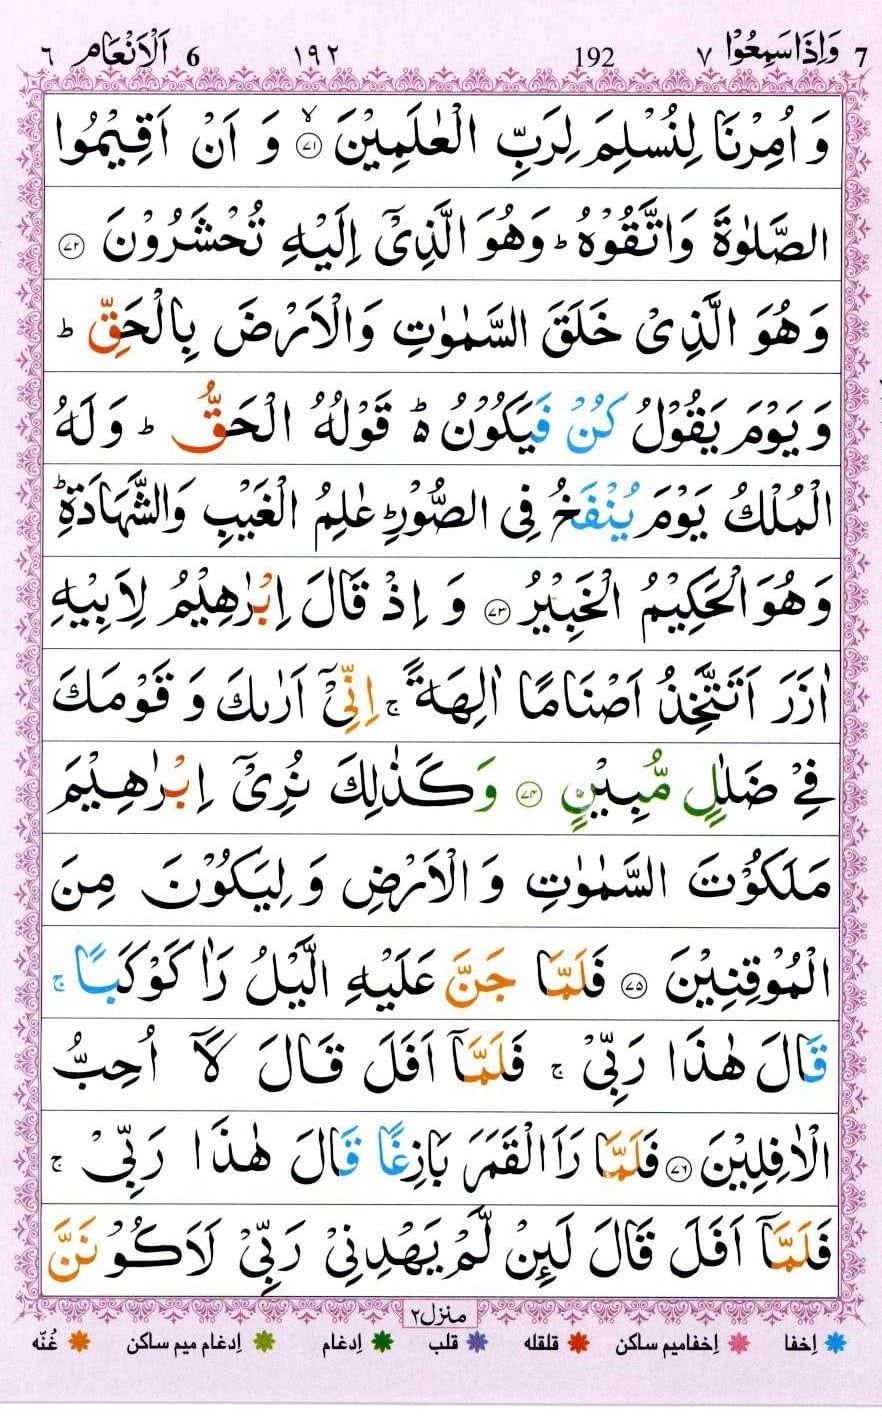 7 وَاِذَا سَمِعُوْا ٧ 192 ١٩٢ 6 اَلْاَنْعَام ٦
وَ اُمِرْنَا لِنُسْلِمَ لِرَبِّ الْعٰلَمِيْنَ ۙ‏﴿۷۱﴾ وَ اَنْ اَقِيْمُوا
الصَّلٰوةَ وَاتَّقُوْهُ ؕ وَهُوَ الَّذِيْۤ اِلَيْهِ تُحْشَرُوْنَ ﴿۷۲﴾
وَهُوَ الَّذِيْ خَلَقَ السَّمٰوٰتِ وَالْاَرْضَ بِالْحَقِّ ؕ
وَيَوْمَ يَقُوْلُ كُنْ فَيَكُوْنُ ۬ؕ قَوْلُهُ الْحَقُّ ؕ وَلَهُ
الْمُلْكُ يَوْمَ يُنْفَخُ فِي الصُّوْرِ ؕ عٰلِمُ الْغَيْبِ وَالشَّهَادَةِ ؕ
وَهُوَ الْحَكِيْمُ الْخَبِيْرُ ﴿۷۳﴾ وَ اِذْ قَالَ اِبْرٰهِيْمُ لِاَبِيْهِ
اٰزَرَ اَتَتَّخِذُ اَصْنَامًا اٰلِهَةً ۚ اِنِّيْۤ اَرٰىكَ وَ قَوْمَكَ
فِيْ ضَلٰلٍ مُّبِيْنٍ ﴿۷۴﴾ وَكَذٰلِكَ نُرِيْۤ اِبْرٰهِيْمَ
مَلَكُوْتَ السَّمٰوٰتِ وَ الْاَرْضِ وَ لِيَكُوْنَ مِنَ
الْمُوْقِنِيْنَ ﴿۷۵﴾ فَلَمَّا جَنَّ عَلَيْهِ الَّيْلُ رَاٰ كَوْكَبًا ۚ
قَالَ هٰذَا رَبِّيْ ۚ فَلَمَّاۤ اَفَلَ قَالَ لَاۤ اُحِبُّ
الْاٰفِلِيْنَ ﴿۷۶﴾ فَلَمَّا رَاَ الْقَمَرَ بَازِغًا قَالَ هٰذَا رَبِّيْ ۚ
فَلَمَّاۤ اَفَلَ قَالَ لَىِٕنْ لَّمْ يَهْدِنِيْ رَبِّيْ لَاَكُوْنَنَّ
منزل٢
اِخفا اِخفامیم ساکن قلقله قلب اِدغام اِدغام میم ساکن غُنّه